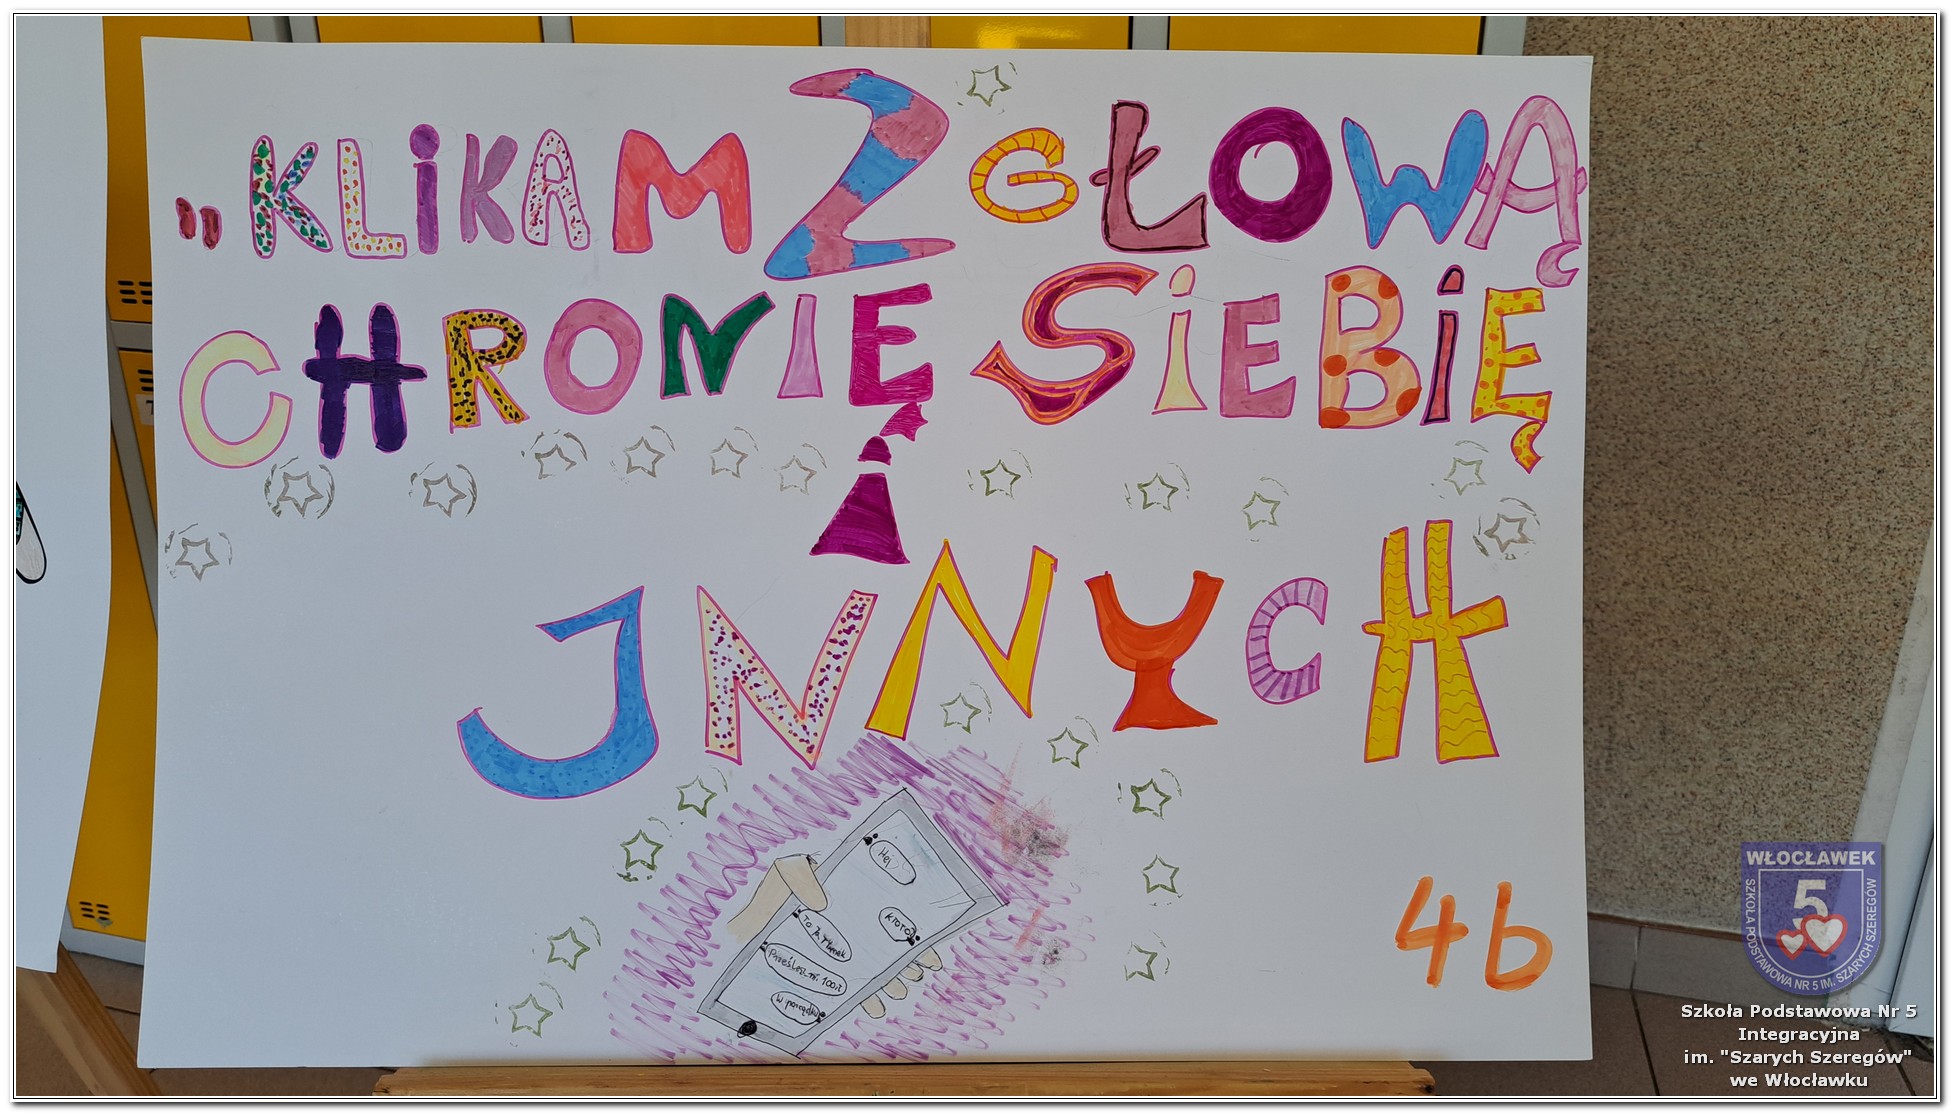 „KLiKAM Z GŁOWĄ
CHRONIĘ SiEBiĘ
i
JNNYCH
Hej
KtoTo?
To Ja, Marek
Prześlesz mi 100zł
W porządku
4b
WŁOCŁAWEK
5
SZKOŁA PODSTAWOWA NR 5 IM. SZARYCH SZEREGÓW
Szkoła Podstawowa Nr 5
Integracyjna
im. "Szarych Szeregów"
we Włocławku